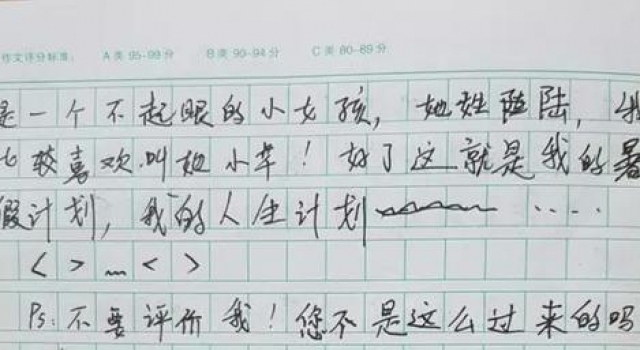 作文评分标准: A类 95-99分 B类 90-94分 C类 80-89分
是一个不起眼的小女孩，她姓陆，我
比较喜欢叫她小苹！好了这就是我的暑
假计划，我的人生计划～～～ ····
< > … < >
Ps:不要评价我！您不是这么过来的吗